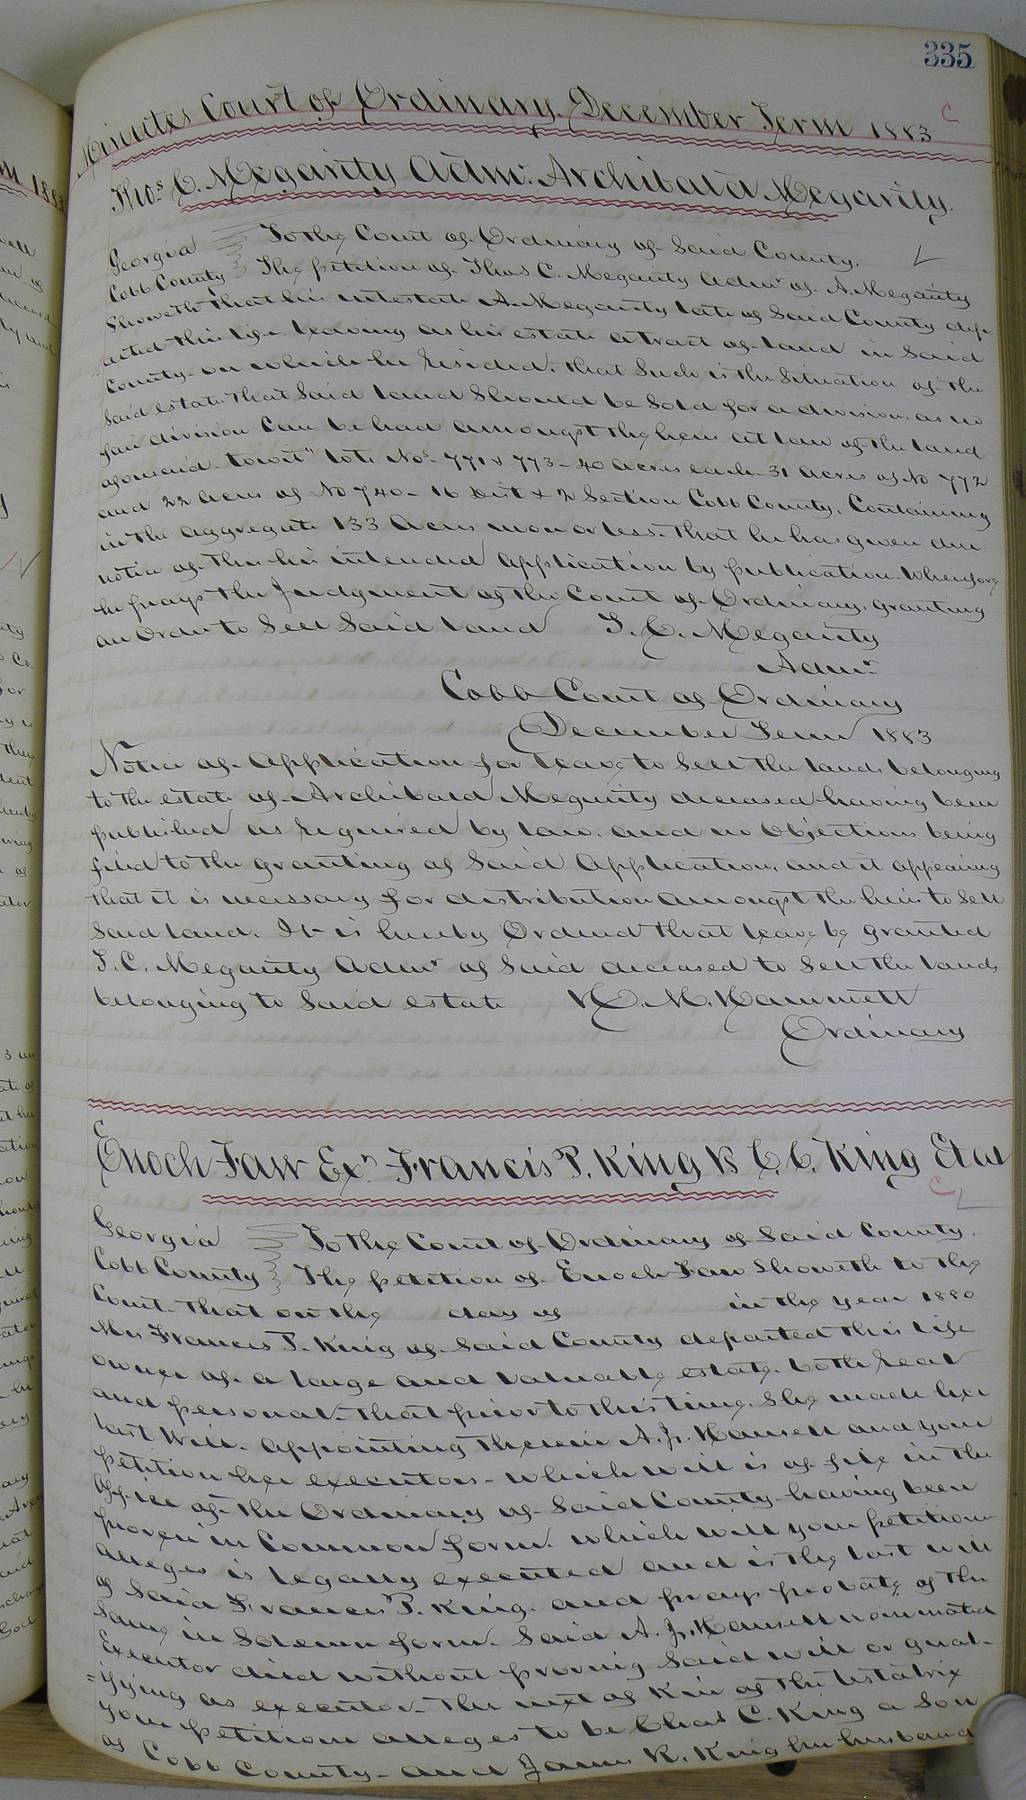 335
Minutes Court of Ordinary December Term 1883
Thos C. Megarity Admr. Archibald Megarity.
Georgia To the Court of Ordinary of Said County.
Cobb County The petition of Thos C. Megarity Admr of A. Megarity
Showeth that his intestate A. Megarity late of Said County dep-
arted this life leaving as his estate a tract of land in Said
County on which he resided. that Such is the Situation of the
Said estate that Said land Should be Sold for a division. as no
fair division Can be had amongst the heirs at law of the land
aforesaid. towit" lots Nos 771 & 773 - 40 acres each - 31 acres of No 772
and 22 acres of No 740 - 16 Dist & 2 Section Cobb County. Containing
in the aggregate 133 acres more or less. that he has given due
notice of this his intended application by publication. Wherefore
he prays the Judgment of the Court of Ordinary. granting
an Order to Sell Said land T. C. Megarity
Admr
Cobb Court of Ordinary
December Term 1883
Notice of application for leave to Sell the lands belonging
to the estate of Archibald Megarity deceased having been
published as required by law. and no Objections being
filed to the granting of Said Application, and it appearing
that it is necessary for distribution amongst the heirs to Sell
Said land. It is hereby Ordered that leave be granted
T. C. Megarity Admr of Said deceased to Sell the lands
belonging to Said estate H. M. Hammett
Ordinary
Enoch Faw Exr Francis P. King vs C. C. King Et al
Georgia To the Court of Ordinary of Said County.
Cobb County The petition of Enoch Faw Showeth to the
Court that on the day of in the year 1880
Mrs Frances P. King of Said County departed this life
owner of a large and valuable estate. both real
and personal. that prior to this time. She made her
last Will. appointing therein A. J. Hansell and your
petition her executors - which will is of file in the
Office of the Ordinary of Said County having been
proven in Common form. which will your petitioner
alleges is legally executed and is the last will
of Said Frances P. King. and prays probate of the
Same in Solemn form. Said A. J. Hansell nominated
Executor died without proving Said will or qual-
=ifying as executor. The next of Kin of the testatrix
your petition alleges to be Chas C. King a Son
of Cobb County - and James R. King her husband